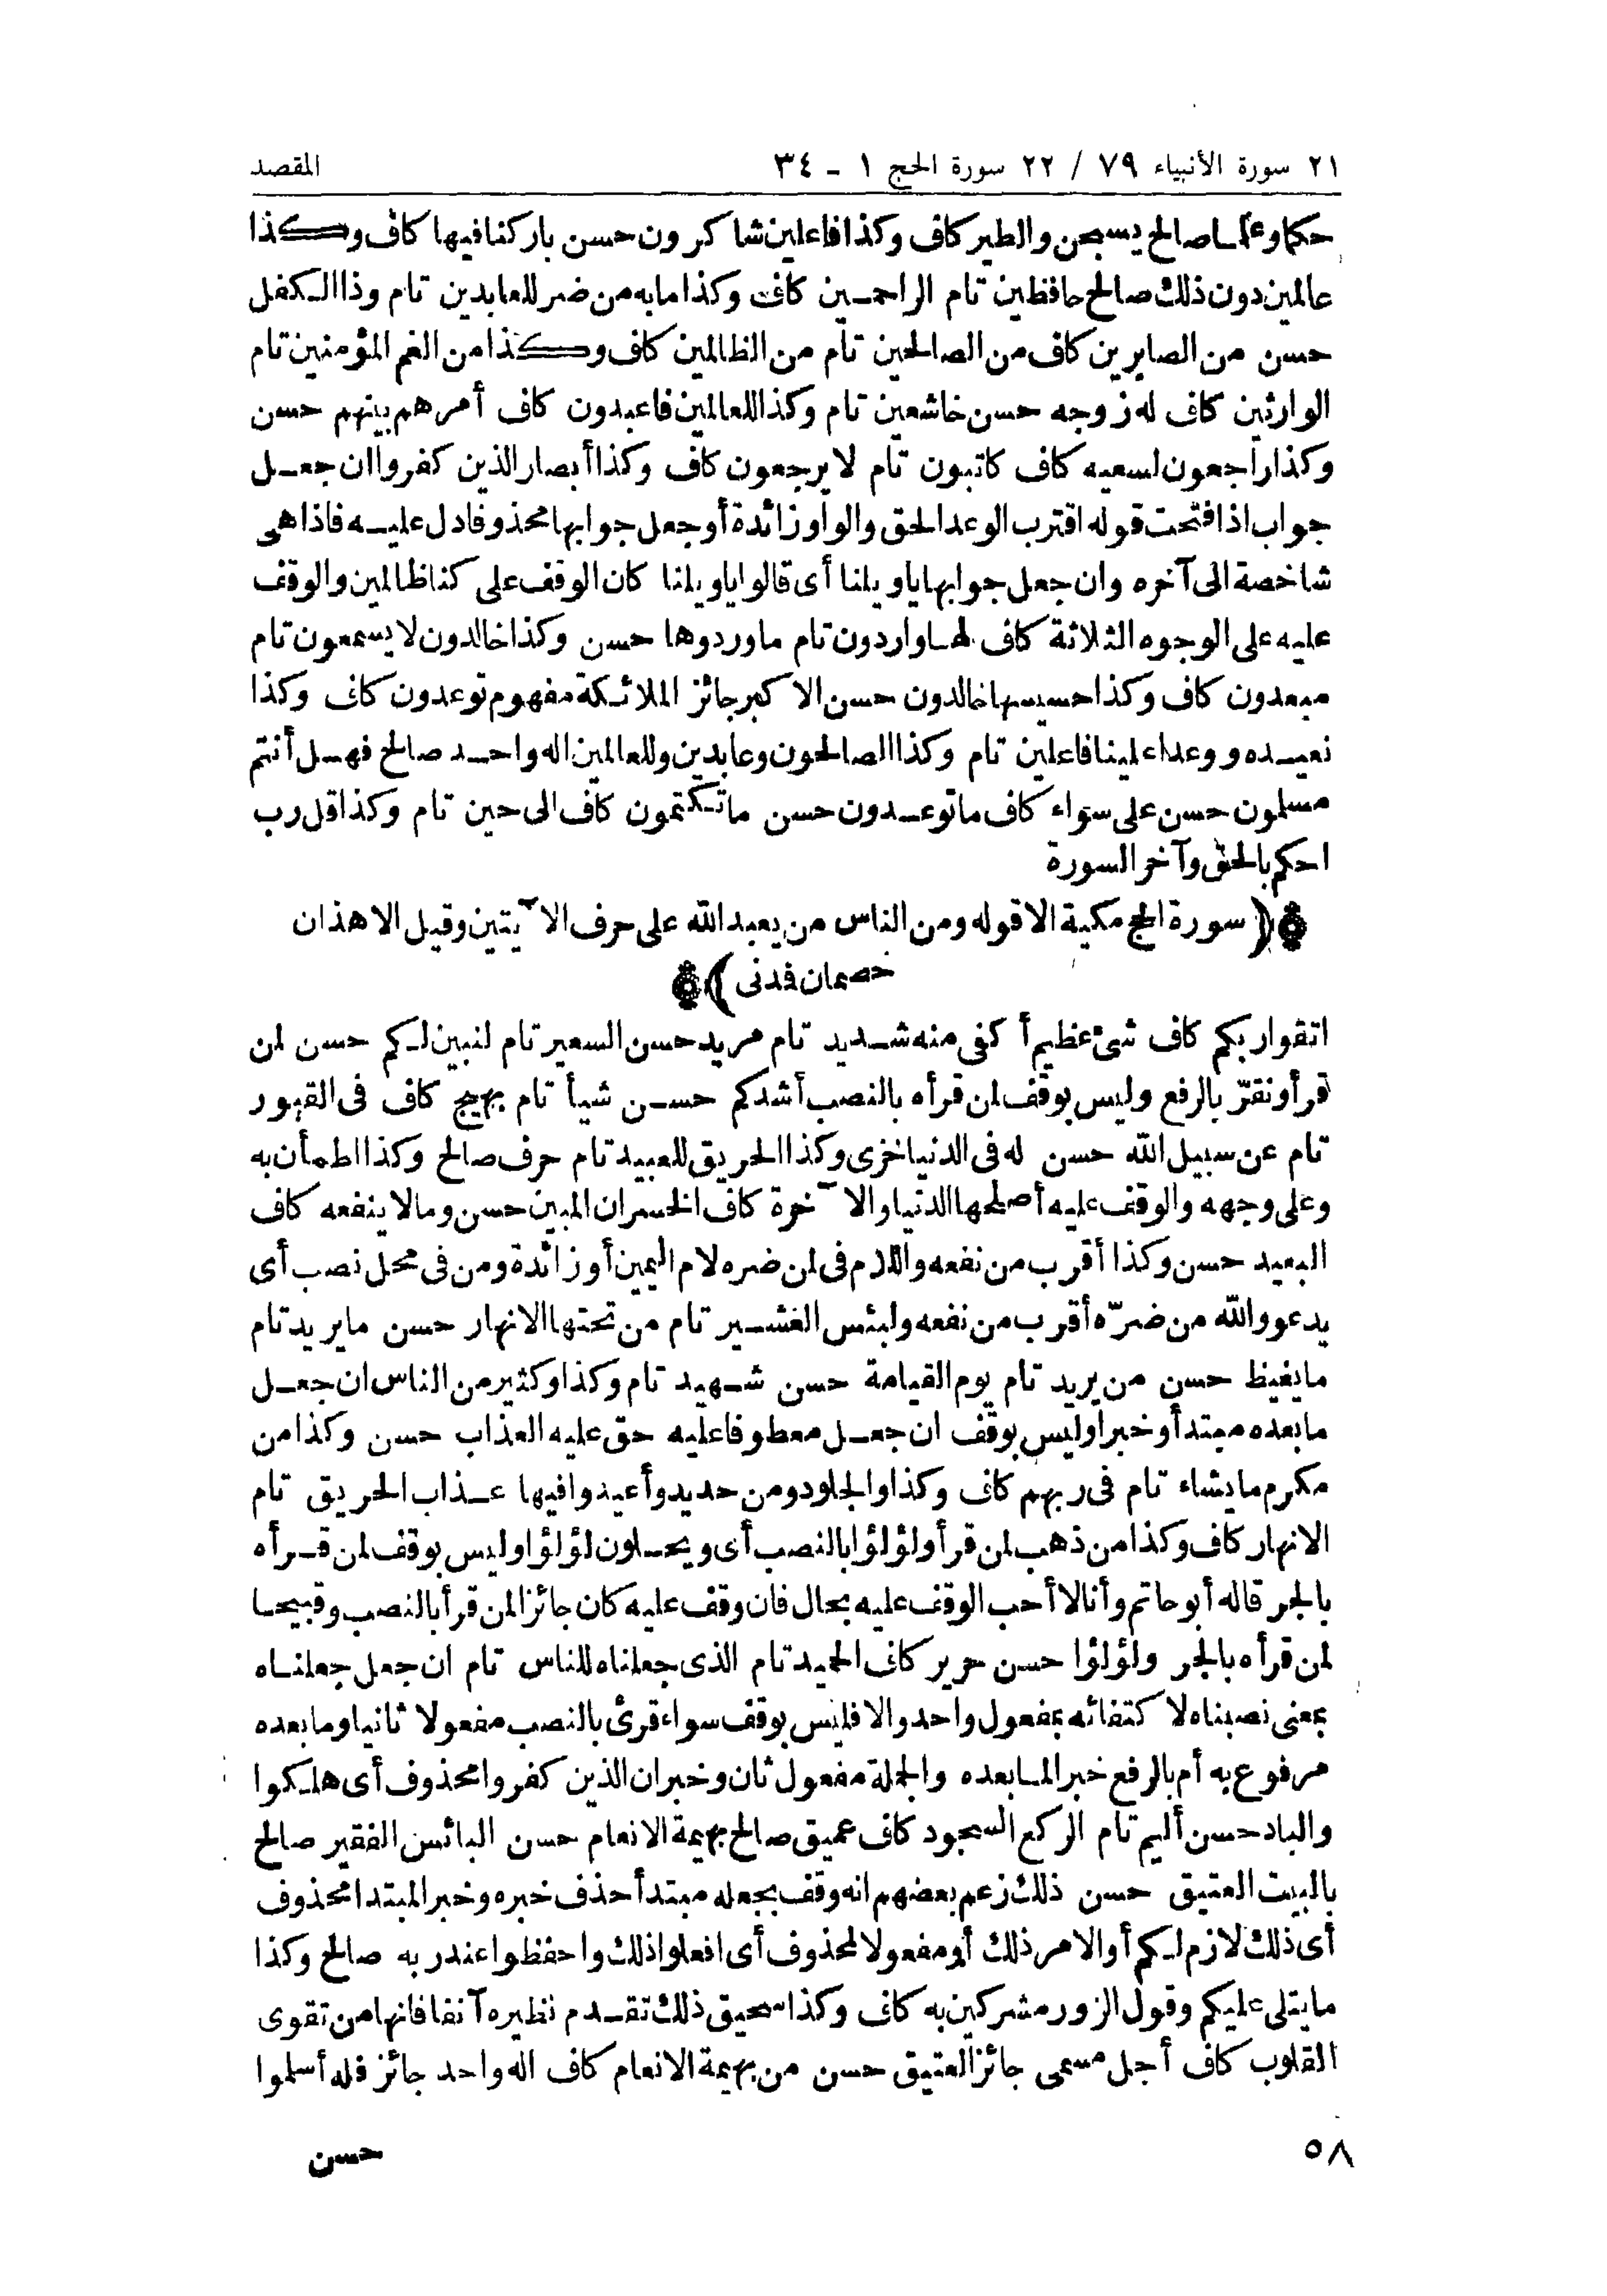 ٢١ سورة الأنبياء ٧٩ / ٢٢ سورة الحج ١ - ٣٤ المقصد
حكما وعلما صالح يسبحن والطير كاف وكذا فاعلين شاكرون حسن باركنا فيها كاف وكذا
عالمين دون ذلك صالح حافظين تام الراحمين كاف وكذا ما به من ضر للعابدين تام وذا الكفل
حسن من الصابرين كاف من الصالحين تام من الظالمين كاف وكذا من الغم المؤمنين تام
الوارثين كاف له زوجه حسن خاشعين تام وكذا للعالمين فاعبدون كاف أمرهم بينهم حسن
وكذا راجعون لسعيه كاف كاتبون تام لا يرجعون كاف وكذا أبصار الذين كفروا ان جعل
جواب اذا فتحت قوله اقترب الوعد الحق والواو زائدة أو جعل جوابها محذوفا دل عليه فاذا هى
شاخصة الى آخره وان جعل جوابها يا ويلنا أى قالوا يا ويلنا كان الوقف على كنا ظالمين والوقف
عليه على الوجوه الثلاثة كاف لها واردون تام ما وردوها حسن وكذا خالدون لا يسمعون تام
مبعدون كاف وكذا حسيسها خالدون حسن الاكبر جائز الملائكة مفهوم توعدون كاف وكذا
نعيده ووعدا علينا فاعلين تام وكذا الصالحون وعابدين وللعالمين اله واحد صالح فهل أنتم
مسلمون حسن على سواء كاف ما توعدون حسن ما تكتمون كاف الى حين تام وكذا قل رب
احكم بالحق وآخر السورة
﴿ سورة الحج مكية الا قوله ومن الناس من يعبد الله على حرف الآيتين وقيل الا هذان
خصمان فدنى ﴾
اتقوا ربكم كاف شئ عظيم أكفى منه شديد تام مريد حسن السعير تام لنبين لكم حسن لمن
قرأ ونقرّ بالرفع وليس بوقف لمن قرأه بالنصب أشدكم حسن شيأ تام بهيج كاف فى القبور
تام عن سبيل الله حسن له فى الدنيا خزى وكذا الحريق للعبيد تام حرف صالح وكذا اطمأن به
وعلى وجهه والوقف عليه أصلحها الدنيا والآخرة كاف الخسران المبين حسن وما لا ينفعه كاف
البعيد حسن وكذا أقرب من نفعه واللام فى لمن ضره لام اليمين أو زائدة ومن فى محل نصب أى
يدعو والله من ضرّه أقرب من نفعه ولبئس العشير تام من تحتها الانهار حسن ما يريد تام
ما يغيظ حسن من يريد تام يوم القيامة حسن شهيد تام وكذا وكثير من الناس ان جعل
ما بعده مبتدأ وخبرا وليس بوقف ان جعل معطوفا عليه حق عليه العذاب حسن وكذا من
مكرم ما يشاء تام فى ربهم كاف وكذا والجلود ومن حديد وأعيدوا فيها عذاب الحريق تام
الانهار كاف وكذا من ذهب لمن قرأ ولؤلؤا بالنصب أى ويحلون لؤلؤا وليس بوقف لمن قرأه
بالجر قاله أبو حاتم وأنا لا أحب الوقف عليه بحال فان وقف عليه كان جائزا لمن قرأ بالنصب وقبيحا
لمن قرأه بالجر ولؤلؤا حسن حرير كاف الحميد تام الذى جعلناه للناس تام ان جعل جعلناه
بمعنى نصبناه لاكتفائه بمفعول واحد والا فليس بوقف سواء قرئ بالنصب مفعولا ثانيا وما بعده
مرفوع به أم بالرفع خبر المابعده والجملة مفعول ثان وخبر ان الذين كفروا محذوف أى هلكوا
والباد حسن أليم تام الركع السجود كاف عميق صالح بهيمة الانعام حسن البائس الفقير صالح
بالبيت العتيق حسن ذلك زعم بعضهم انه وقف بجعله مبتدأ حذف خبره وخبر المبتدا محذوف
أى ذلك لازم لكم أو الامر ذلك أو مفعولا لمحذوف أى افعلوا ذلك واحفظوا عند ربه صالح وكذا
ما يتلى عليكم وقول الزور مشركين به كاف وكذا سحيق ذلك تقدم نظيره آنفا فانها من تقوى
القلوب كاف أجل مسمى جائز العتيق حسن من بهيمة الانعام كاف اله واحد جائز فله أسلموا
٥٨ حسن